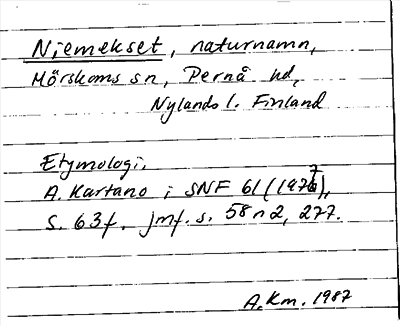 Niemekset, naturnamn,
Mörskoms sn, Pernå hd,
Nylands l. Finland
Etymologi.
A. Kartano i SNF 61 (1977),
s. 63f. jmf. s. 58 n 2, 277.
A.Km. 1987